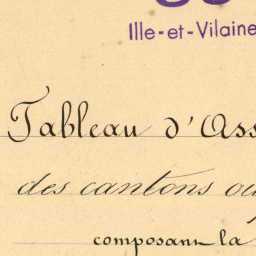 Ille-et-Vilaine
Tableau d'Ass
des cantons ou
composant la